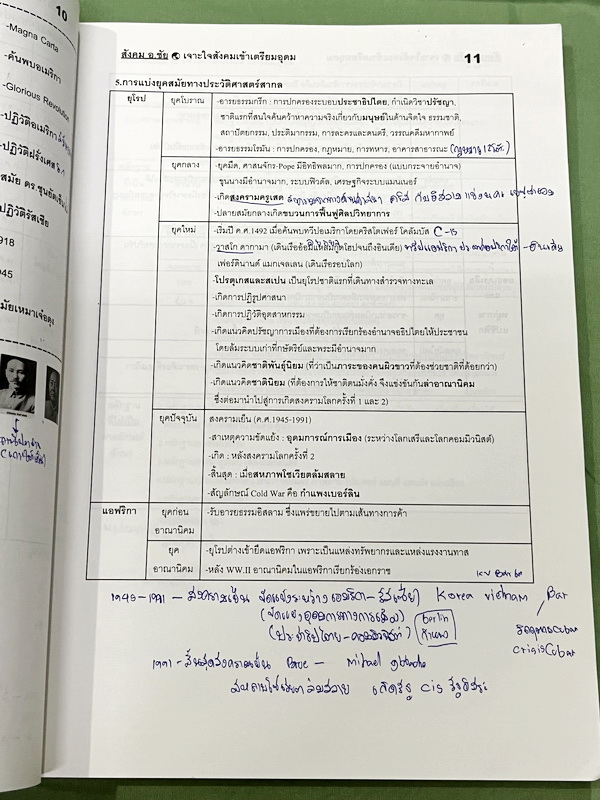 10
-Magna Carta
-ค้นพบอเมริกา
-Glorious Revolution
-ปฏิวัติอเมริกา
-ปฏิวัติฝรั่งเศส
สมัย ดร.ซุนยัดเซ็น
ปฏิวัติรัสเซีย
1918
1945
สมัยเหมาเจ๋อตุง
สังคม อ.ชัย เจาะใจสังคมเข้าเตรียมอุดม 11
5.การแบ่งยุคสมัยทางประวัติศาสตร์สากล
ยุโรป ยุคโบราณ -อารยธรรมกรีก : การปกครองระบอบประชาธิปไตย, กำเนิดวิชาปรัชญา,
ชาติแรกที่สนใจค้นคว้าหาความจริงเกี่ยวกับมนุษย์ในด้านจิตใจ ธรรมชาติ,
สถาปัตยกรรม, ประติมากรรม, การละครและดนตรี, วรรณคดีมหากาพย์
-อารยธรรมโรมัน : การปกครอง, กฎหมาย, การทหาร, อาคารสาธารณะ
ยุคกลาง -ยุคมืด, ศาสนจักร-Pope มีอิทธิพลมาก, การปกครอง (แบบกระจายอำนาจ)
ขุนนางมีอำนาจมาก, ระบบฟิวดัล, เศรษฐกิจระบบแมนเนอร์
-เกิดสงครามครูเสด
-ปลายสมัยกลางเกิดขบวนการฟื้นฟูศิลปวิทยาการ
ยุคใหม่ -เริ่มปี ค.ศ.1492 เมื่อค้นพบทวีปอเมริกาโดยคริสโตเฟอร์ โคลัมบัส C-15
-วาสโก ดากามา (เดินเรืออ้อมแหลมกู๊ดโฮปจนถึงอินเดีย)
เฟอร์ดินานด์ แมกเจลเลน (เดินเรือรอบโลก)
-โปรตุเกสและสเปน เป็นยุโรปชาติแรกที่เดินทางสำรวจทางทะเล
-เกิดการปฏิรูปศาสนา
-เกิดการปฏิวัติอุตสาหกรรม
-เกิดแนวคิดปรัชญาการเมืองที่ต้องการเรียกร้องอำนาจอธิปไตยให้ประชาชน
โดยล้มระบบเก่าที่กษัตริย์และพระมีอำนาจมาก
-เกิดแนวคิดชาติพันธุ์นิยม (ที่ว่าเป็นภาระของคนผิวขาวที่ต้องช่วยชาติที่ด้อยกว่า)
-เกิดแนวคิดชาตินิยม (ที่ต้องการให้ชาติตนมั่งคั่ง จึงแข่งขันกันล่าอาณานิคม
ซึ่งต่อมานำไปสู่การเกิดสงครามโลกครั้งที่ 1 และ 2)
ยุคปัจจุบัน สงครามเย็น (ค.ศ.1945-1991)
-สาเหตุความขัดแย้ง : อุดมการณ์การเมือง (ระหว่างโลกเสรีและโลกคอมมิวนิสต์)
-เกิด : หลังสงครามโลกครั้งที่ 2
-สิ้นสุด : เมื่อสหภาพโซเวียตล้มสลาย
-สัญลักษณ์ Cold War คือ กำแพงเบอร์ลิน
แอฟริกา ยุคก่อนอาณานิคม -รับอารยธรรมอิสลาม ซึ่งแพร่ขยายไปตามเส้นทางการค้า
ยุคอาณานิคม -ยุโรปต่างเข้ายึดแอฟริกา เพราะเป็นแหล่งทรัพยากรและแหล่งแรงงานทาส
-หลัง WW.II อาณานิคมในแอฟริกาเรียกร้องเอกราช
1945-1991 - สงครามเย็น Korea vietnam
(ประชาธิปไตย-คอมมิวนิสต์) berlin กำแพง
crisis Cubar
1991 -